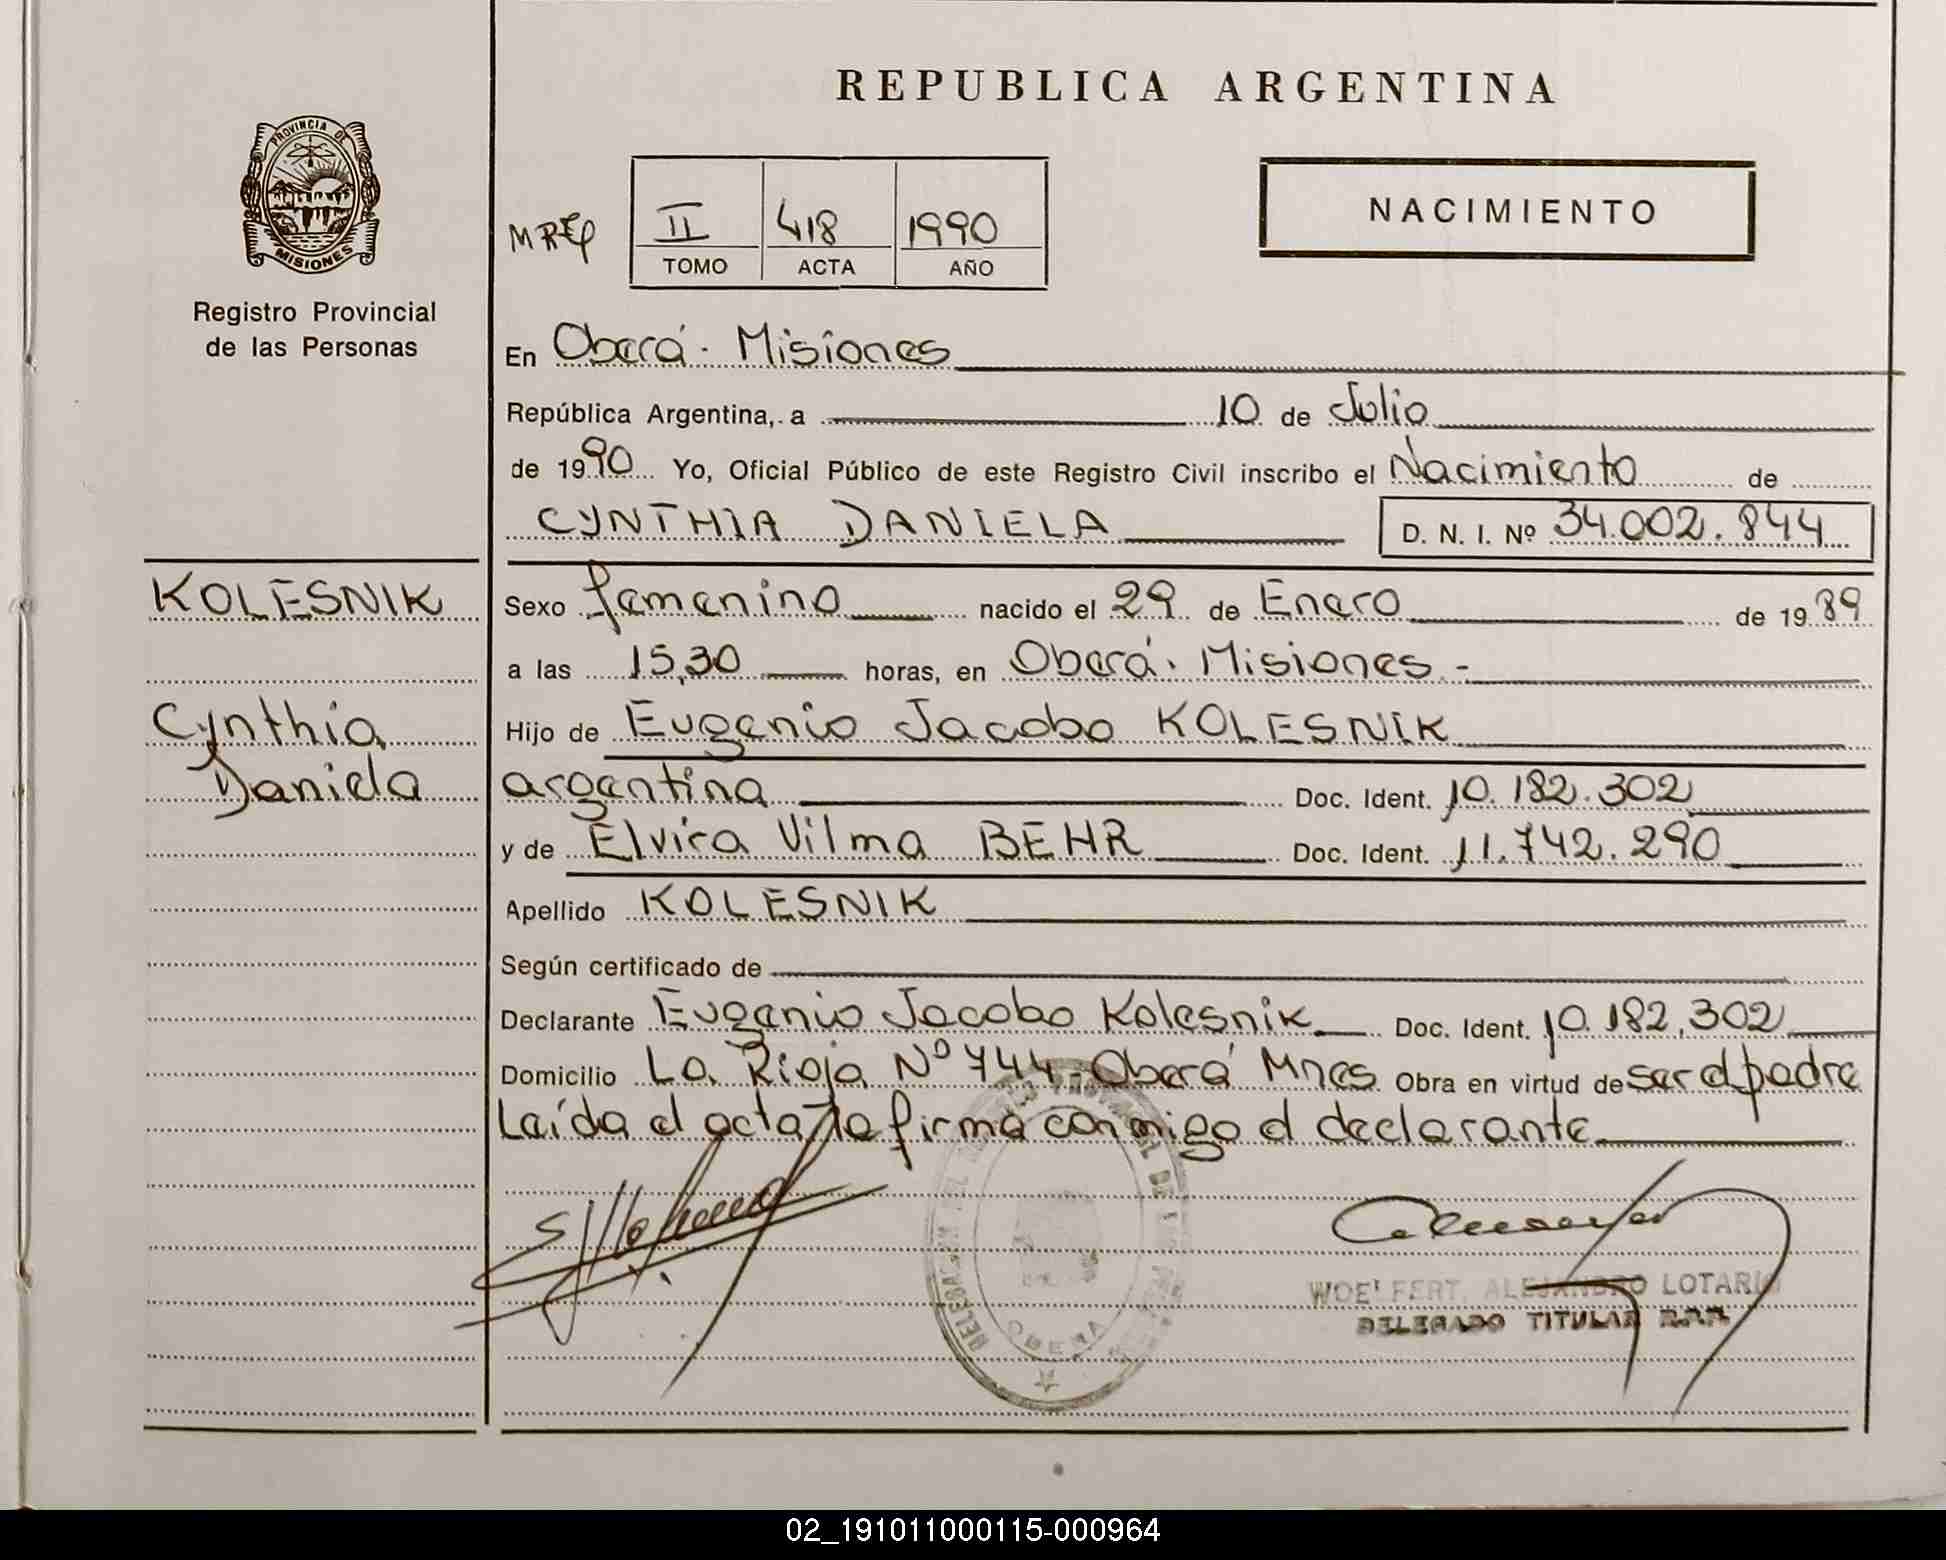 REPUBLICA ARGENTINA
PROVINCIA DE
MISIONES
Registro Provincial
de las Personas
II 418 1990
TOMO ACTA AÑO
NACIMIENTO
En Oberá - Misiones
República Argentina, a 10 de Julio
de 1990 Yo, Oficial Público de este Registro Civil inscribo el Nacimiento de
CYNTHIA DANIELA D. N. I. Nº 34.002.844
KOLESNIK
Cynthia
Daniela
Sexo femenino nacido el 29 de Enero de 1989
a las 15,30 horas, en Oberá. Misiones -
Hijo de Eugenio Jacobo KOLESNIK
argentina Doc. Ident. 10.182.302
y de Elvira Vilma BEHR Doc. Ident. 11.742.290
Apellido KOLESNIK
Según certificado de
Declarante Eugenio Jacobo Kolesnik Doc. Ident. 10.182.302
Domicilio La Rioja Nº 744 - Oberá Mnes Obra en virtud de ser el padre
Leída el acta la firma conmigo el declarante
WOELFERT, ALEJANDRO LOTARIO
DELEGADO TITULAR R.P.P.
02_191011000115-000964